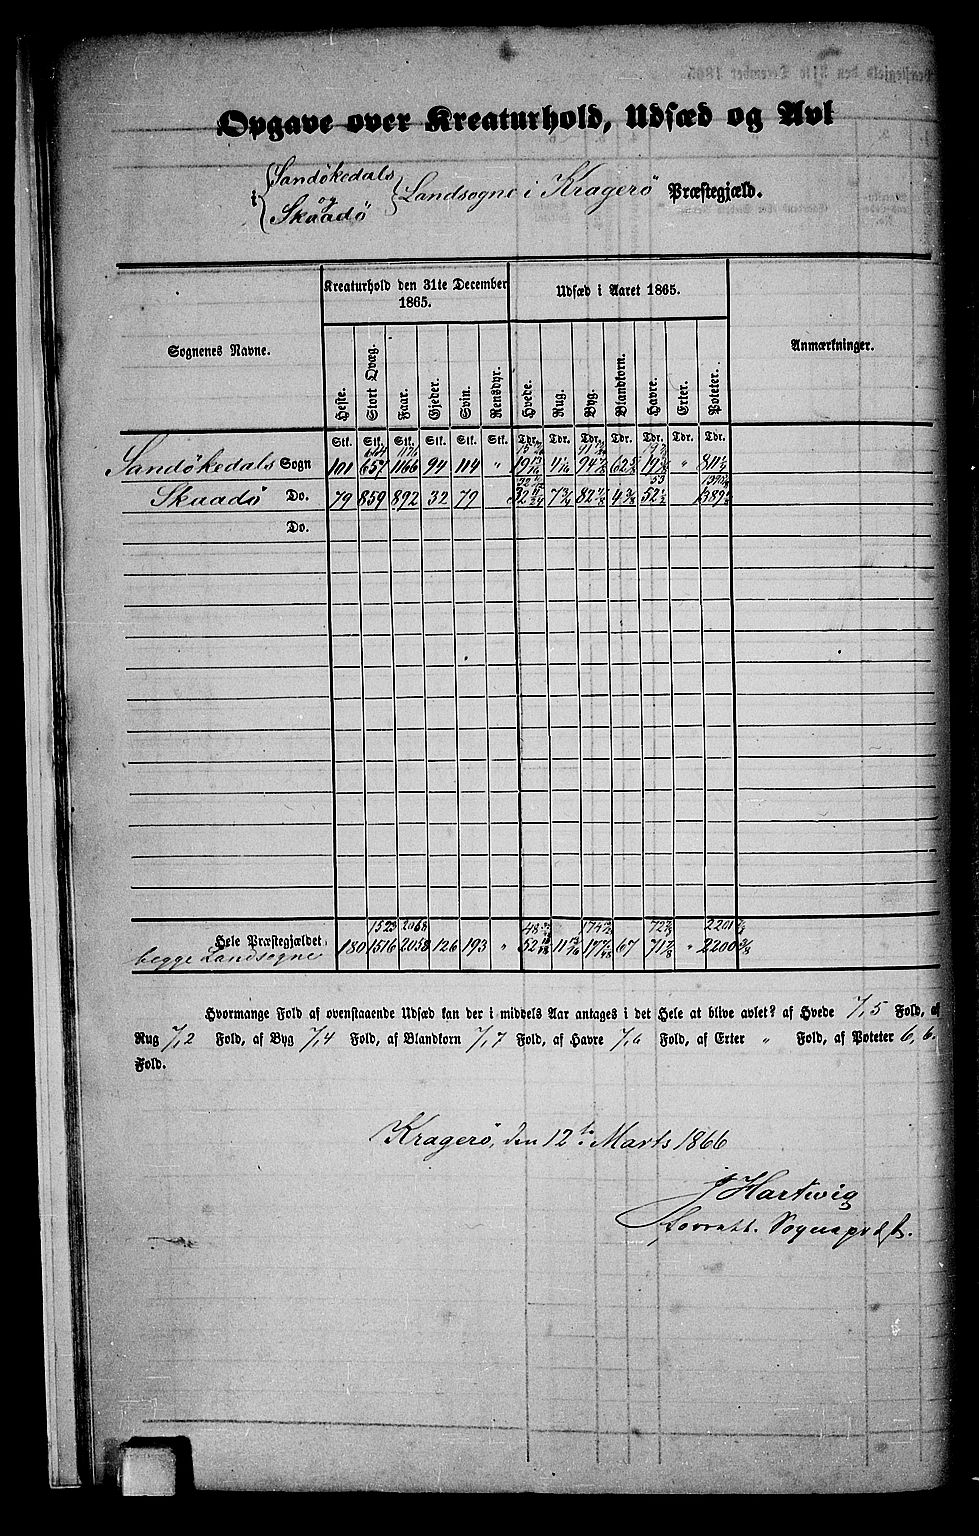 Opgave over Kreaturhold, Udsæd og Avl
i Sandökedals og Skaadö Landsogne i Kragerö Præstegjæld.
Sognenes Navne. Kreaturhold den 31te December 1865. Udsæd i Aaret 1865. Anmærkninger.
Heste. Stort Qvæg. Faar. Gjeder. Svin. Rensdyr. Hvede. Rug. Byg. Blandkorn. Havre. Erter. Poteter.
Stk. Stk. Stk. Stk. Stk. Stk. Tdr. Tdr. Tdr. Tdr. Tdr. Tdr. Tdr.
664 1176
Sandökedals Sogn 101 657 1166 94 114 " " 811½
53
Skaadö Do. 79 859 892 32 79 52½
Do.
1523 2068
Hele Præstegjældet, 180 1516 2058 126 193 " 67 " 2200
begge Landsogne
Hvormange Fold af ovenstaaende Udsæd kan der i middels Aar antages i det Hele at blive avlet? af Hvede 7,5 Fold, af
Rug 7,2 Fold, af Byg 7,4 Fold, af Blandkorn 7,7 Fold, af Havre 7,6 Fold, af Erter " Fold, af Poteter 6,6.
Fold.
Kragerö, den 12te Marts 1866
J Hartwig
Sognepræst.